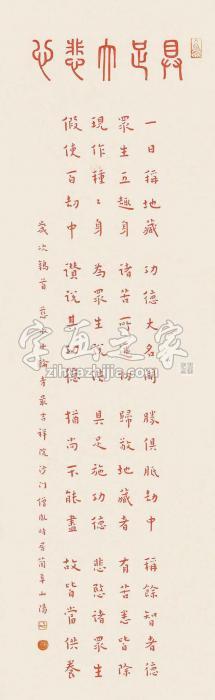 具足大悲心
一日稱地藏 功德大名聞 勝俱胝劫中 稱餘智者德
眾生五趣身 諸苦所逼切 歸敬地藏者 有苦悉皆除
現作種〻身 為眾生說法 具足施功德 悲愍諸眾生
假使百劫中 讚說其功德 猶尚不能盡 故皆當供養
歲次鶉首 吉祥院沙門僧胤時居